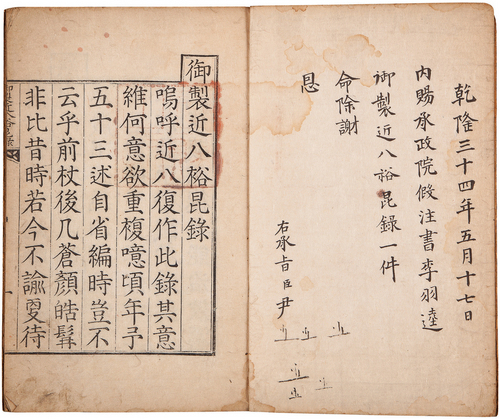 乾隆三十四年五月十七日
內賜承政院假注書李羽逵
御製近八裕昆錄一件
命除謝
恩
右承旨臣尹
御製近八裕昆錄
嗚呼近八復作此錄其意
維何意欲重複噫頃年予
五十三述自省編時豈不
云乎前杖後几蒼顏皓髯
非比昔時若今不諭夏待